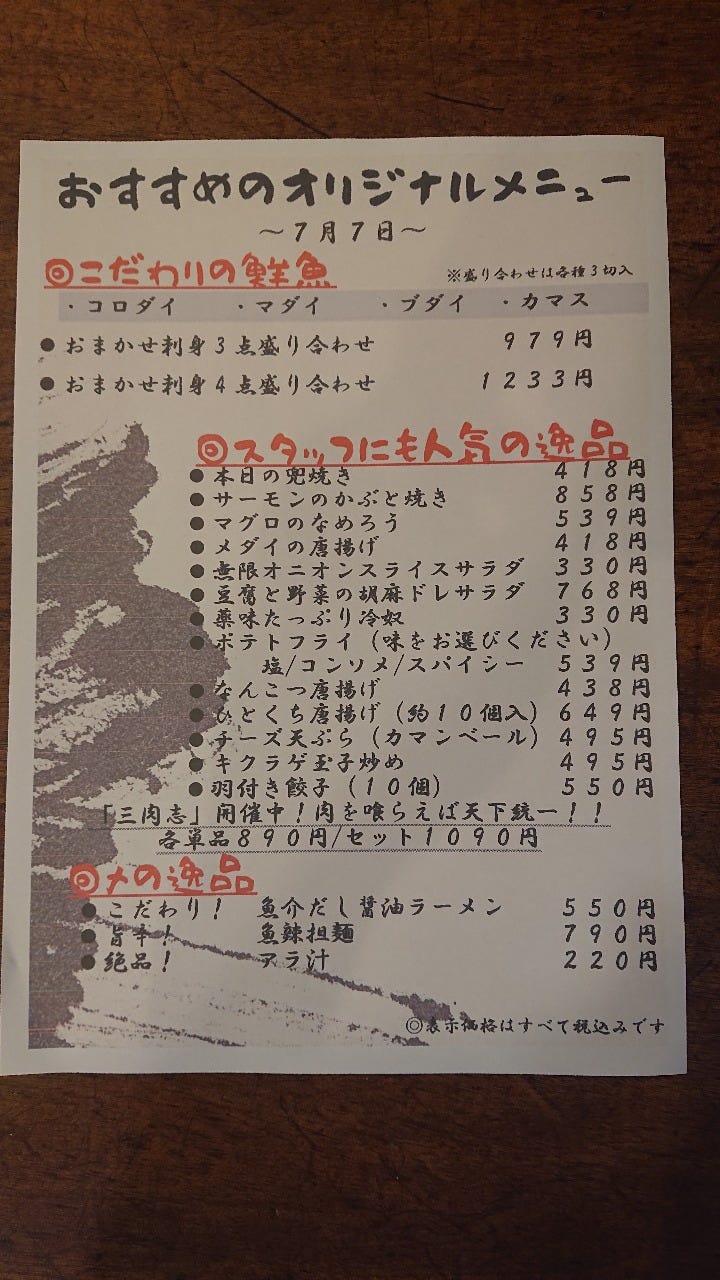 おすすめのオリジナルメニュー
～7月7日～
◎こだわりの鮮魚 ※盛り合わせは各種3切入
・コロダイ ・マダイ ・ブダイ ・カマス
●おまかせ刺身3点盛り合わせ 979円
●おまかせ刺身4点盛り合わせ 1233円
◎スタッフにも人気の逸品
●本日の兜焼き 418円
●サーモンのかぶと焼き 858円
●マグロのなめろう 539円
●メダイの唐揚げ 418円
●無限オニオンスライスサラダ 330円
●豆腐と野菜の胡麻ドレサラダ 768円
●薬味たっぷり冷奴 330円
●ポテトフライ(味をお選びください)
塩/コンソメ/スパイシー 539円
●なんこつ唐揚げ 438円
●ひとくち唐揚げ(約10個入) 649円
●チーズ天ぷら(カマンベール) 495円
●キクラゲ玉子炒め 495円
●羽付き餃子(10個) 550円
「三肉志」開催中!肉を喰らえば天下統一!!
各単品890円/セット1090円
◎〆の逸品
●こだわり! 魚介だし醤油ラーメン 550円
●旨辛! 魚辣担麺 790円
●絶品! アラ汁 220円
◎表示価格はすべて税込みです